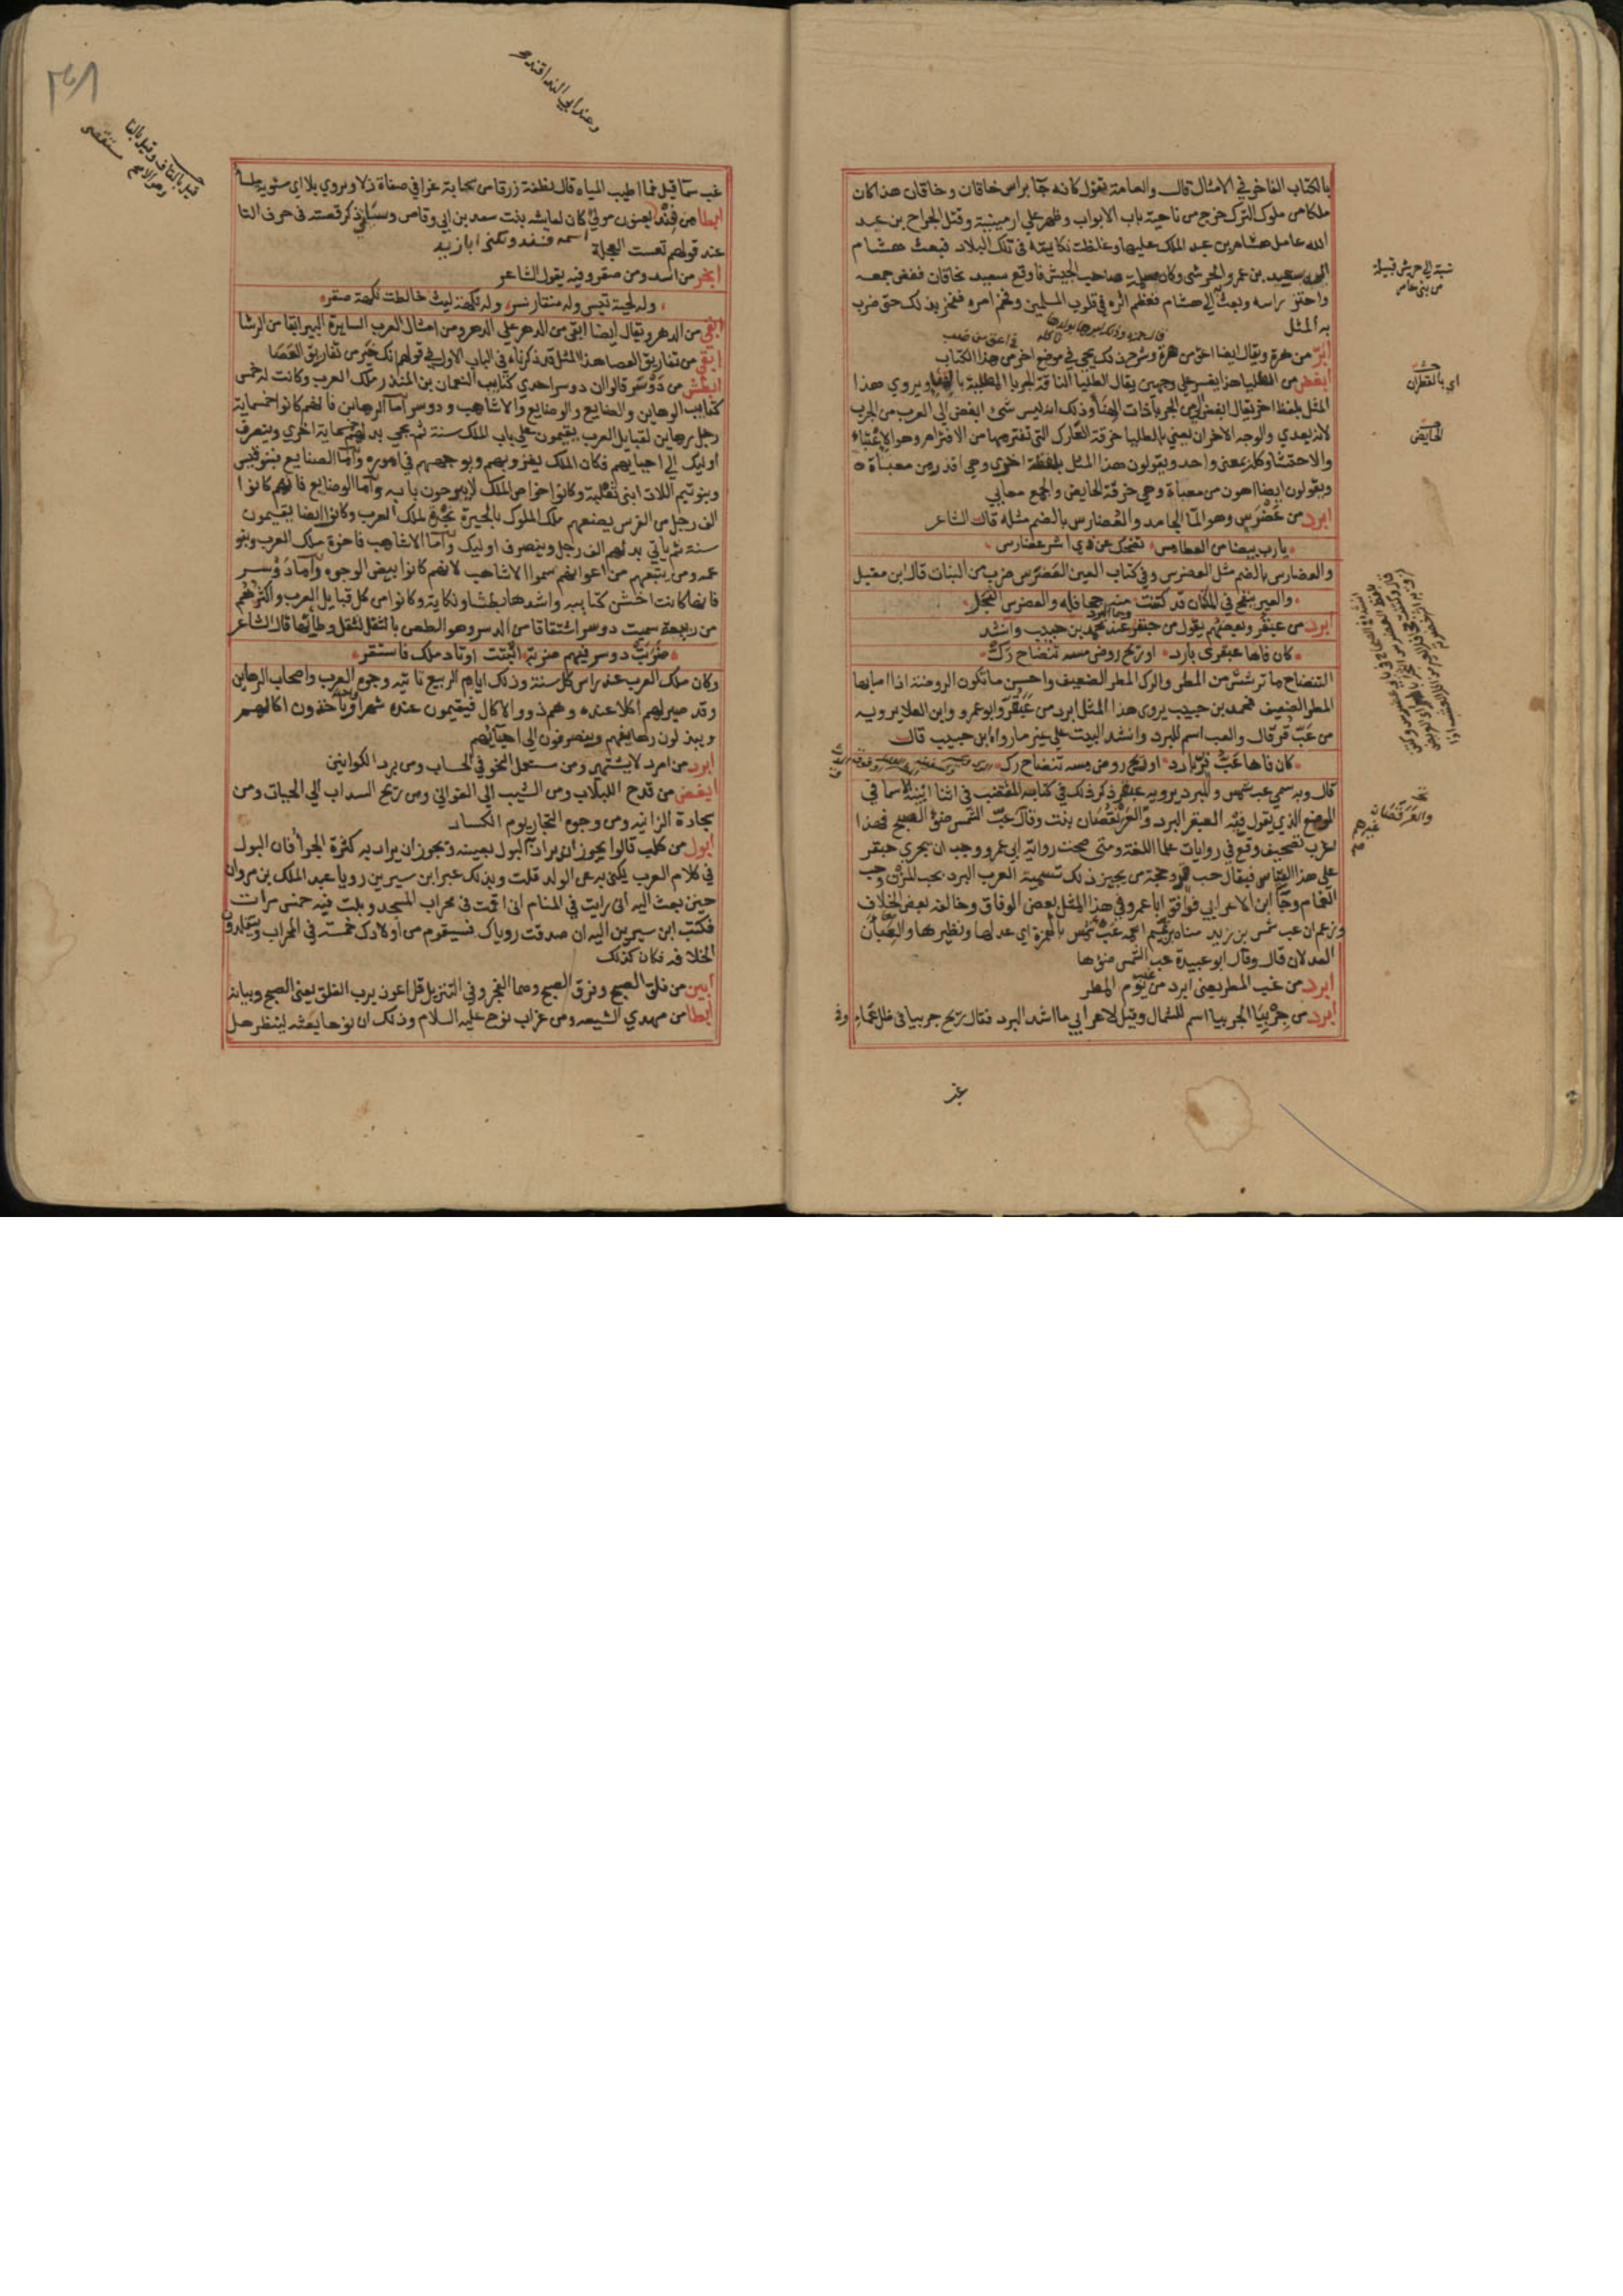 بالكتاب الفاخر في الامثال قال والعامة تقول كانه جا براس خاقان وخاقان هذا كان
ملكا من ملوك الترك خرج من ناحية باب الابواب وظهر علي ارمينية وقتل الجراح بن عبد
الله عامل هشام بن عبد الملك عليها وغلظت نكايته في تلك البلاد فبعث هشام
اليه سعيد بن عمرو الحرشي وكان مسلمة صاحب الجيش فاوقع سعيد بخاقان ففض جمعه
واحتز راسه وبعث به الي هشام فعظم اثره في قلوب المسلمين وفخم امره ففخر بذلك حتى ضرب
به المثل
ابر من هرة ويقال ايضا اعق من هرة وشرح ذلك يجي في موضع اخر من هذا الكتاب
ابغض من الطليا هذا يفسر علي وجهين يقال الطليا الناقة الجربا المطلية بالهنا ويروي هذا
المثل بلفظ اخر فيقال ابغض الي من الجربا ذات الهنا وذلك انه ليس شئ ابغض الي العرب من الجرب
لانه يعدي والوجه الاخر ان يعني بالطليا خرقة العارك التي تفترمها من الافترام وهو الاعتباء
والاحتشا وكله بمعنى واحد ويقولون هذا المثل بلفظة اخري وهي اقذر من معباة
ويقولون ايضا اهون من معباة وهي خرقة الحايض والجمع معابي
ابرد من عضرس وهو الما الجامد والعضارس بالضم مثله قال الشاعر
يا رب بيضا من العطامس تضحك عن ذي اشر عضارس
والعضارس بالضم مثل العضرس وفي كتاب العين العضرس ضرب من النبات قال ابن مقبل
والعير ينفخ في المكنان قد كتنت منه جحافله والعضرس الثجل
ابرد من عبقر وبعضهم يقول من حبقر وهما البرد عند محمد بن حبيب وانشد
كان فاها عبقري بارد او ريح روض مسه تنضاح رك
التنضاح ما ترشش من المطر والرك المطر الضعيف واحسن ما تكون الروضة اذا اصابها
المطر الضعيف فمحمد بن حبيب يروي هذا المثل ابرد من عبقر وابو عمرو وابن العلا يرويه
من عب قر قال والعب اسم للبرد وانشد البيت علي غير ما رواه ابن حبيب قال
كان فاها عب قر بارد او ريح روض مسه تنضاح رك
قال وبه سمي عب شمس والمبرد يرويه عبقر ذكر ذلك في كتابه المقتضب في اثنا ابنية الاسما في
الموضع الذي يقول فيه العبقر البرد والعرنقصان نبت وقال عب الشمس ضوء الصبح فهذا
اغرب تصحيف وقع في روايات علما اللغة ومتى صحت رواية ابي عمرو وجب ان يجري حبقر
علي هذا القياس فيقال حب قر وحجة من يجيز ذلك تسمية العرب البرد بحب المزن وحب
الغمام وجا ابن الاعرابي فوافق ابا عمرو في هذا المثل بعض الوفاق وخالفه بعض الخلاف
وزعم ان عب شمس بن زيد مناة بن تميم اسمه عبء شمس بالهمزة اي عدلها ونظيرها والعبان
العدلان قال وقال ابو عبيدة عب الشمس ضوها
ابرد من غب المطر يعني ابرد من غب يوم المطر
ابرد من جربيا الجربيا اسم للشمال وقيل لاعرابي ما اشد البرد فقال ريح جربيا في ظل عماء
غب
نسبة الي حريش قبيلة
من بني عامر
اي بالقطران
الحايض
غب سما قيل فما اطيب المياه قال نطفة زرقا من سحابة غرا في صفاة زلا ويروي بلا اي مستوية ملسا
ابطا من فند يعنون مولي كان لعايشه بنت سعد بن ابي وقاص وسياتي ذكر قصته في حرف التا
عند قولهم تعست العجلة اسمه فند ويكنى ابا زيد
ابخر من اسد ومن صقر وفيه يقول الشاعر
وله لحية تيس وله منقار نسر وله نكهة ليث خالطت نكهة صقر
ابقي من الدهر ويقال ايضا ابقى من الدهر علي الدهر ومن امثال العرب السايرة البير ابقا من الرشا
ابقي من تفاريق العصا هذا المثل قد ذكرناه في الباب الاول في قولهم انك خير من تفاريق العصا
ابطش من دوسر قالوا ان دوسر احدي كتايب النعمان بن المنذر ملك العرب وكانت له خمس
كتايب الرهاين والصنايع والوضايع والاشاهب ودوسر اما الرهاين فانهم كانوا خمسماية
رجل رهاين لقبايل العرب يقيمون علي باب الملك سنة ثم يجي بدلهم خمسماية اخري وينصرف
اوليك الي احيايهم فكان الملك يغزو بهم ويوجههم في اموره واما الصنايع فبنو قيس
وبنو تيم اللات ابني ثعلبة وكانوا خواص الملك لا يبرحون بابه واما الوضايع فانهم كانوا
الف رجل من الفرس يضعهم ملك الملوك بالحيرة نجدة لملك العرب وكانوا ايضا يقيمون
سنة ثم ياتي بدلهم الف رجل وينصرف اوليك واما الاشاهب فاخوة ملك العرب وبنو
عمه ومن يتبعهم من اعوانهم سموا الاشاهب لانهم كانوا بيض الوجوه واما دوسر
فانها كانت اخشن كتايبه واشدها بطشا ونكاية وكانوا من كل قبايل العرب واكثرهم
من ربيعة سميت دوسر اشتقاقا من الدسر وهو الطعن بالثقل لثقل وطاتها قال الشاعر
ضربت دوسر فيهم ضربة اثبتت اوتاد ملك فاستقر
وكان ملك العرب عند راس كل سنة وذلك ايام الربيع تاتيه وجوه العرب واصحاب الرهاين
وقد صير لهم اكلا عنده وهم ذوو الاكال فيقيمون عنده شهرا وياخذون اكالهم
ويبدلون رهاينهم وينصرفون الى احيايهم
ابرد من امرد لا يشتهى ومن مستعمل النحو في الحساب ومن برد الكوانين
ابغض من قدح اللبلاب ومن الشيب الي الغواني ومن ريح السداب الي الحيات ومن
سجادة الزانيه ومن وجوه التجار يوم الكساد
ابول من كلب قالوا يجوز ان يراد به البول بعينه ويجوز ان يراد به كثرة الجرا فان البول
في كلام العرب يكنى به عن الولد قلت وبذلك عبر ابن سيرين رويا عبد الملك بن مروان
حين بعث اليه اني رايت في المنام اني اقمت في محراب المسجد وبلت فيه خمس مرات
فكتب ابن سيرين اليه ان صدقت روياك فسيقوم من اولادك خمسة في المحراب ويتقلدون
الخلافه فكان كذلك
ابين من فلق الصبح وفرق الصبح وهما الفجر وفي التنزيل قل اعوذ برب الفلق يعني الصبح وبيانه
ابطا من مهدي الشيعه ومن غراب نوح عليه السلام وذلك ان نوحا بعثه لينظر هل
قيل بالقاف وقيل بالفا
وهو الاصح مستقصى